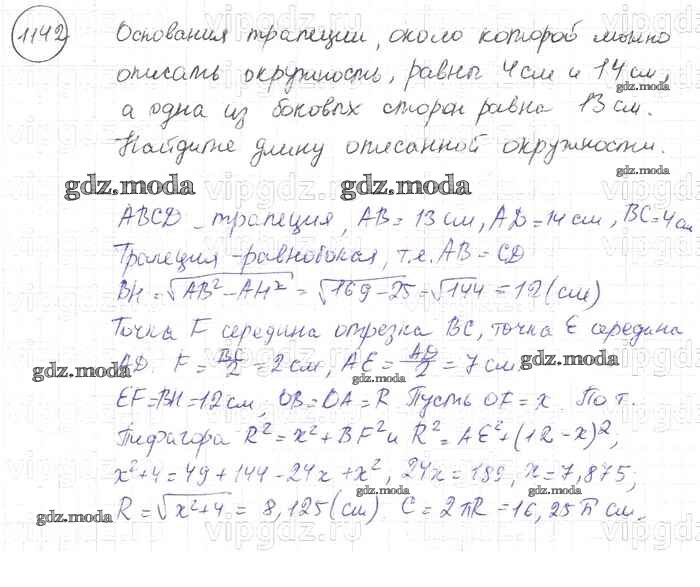 1142 Основания трапеции, около которой можно
описать окружность, равны 4 см и 14 см,
а одна из боковых сторон равна 13 см.
Найдите длину описанной окружности.
ABCD - трапеция, AB = 13 см, AD = 14 см, BC = 4 см
Трапеция - равнобокая, т.е. AB = CD
BH = √AB² - AH² = √169 - 25 = √144 = 12 (см)
Точка F середина отрезка BC, точка E середина
AD F = BC/2 = 2 см, AE = AD/2 = 7 см.
EF = BH = 12 см, OB = OA = R Пусть OF = x. По т.
Пифагора R² = x² + BF² и R² = AE² + (12 - x)²,
x² + 4 = 49 + 144 - 24x + x², 24x = 189, x = 7,875;
R = √x² + 4 = 8,125 (см) C = 2πR = 16,25π см.
gdz.moda
gdz.moda
gdz.moda
gdz.moda
gdz.moda
gdz.moda
gdz.moda
gdz.moda
gdz.moda
gdz.moda